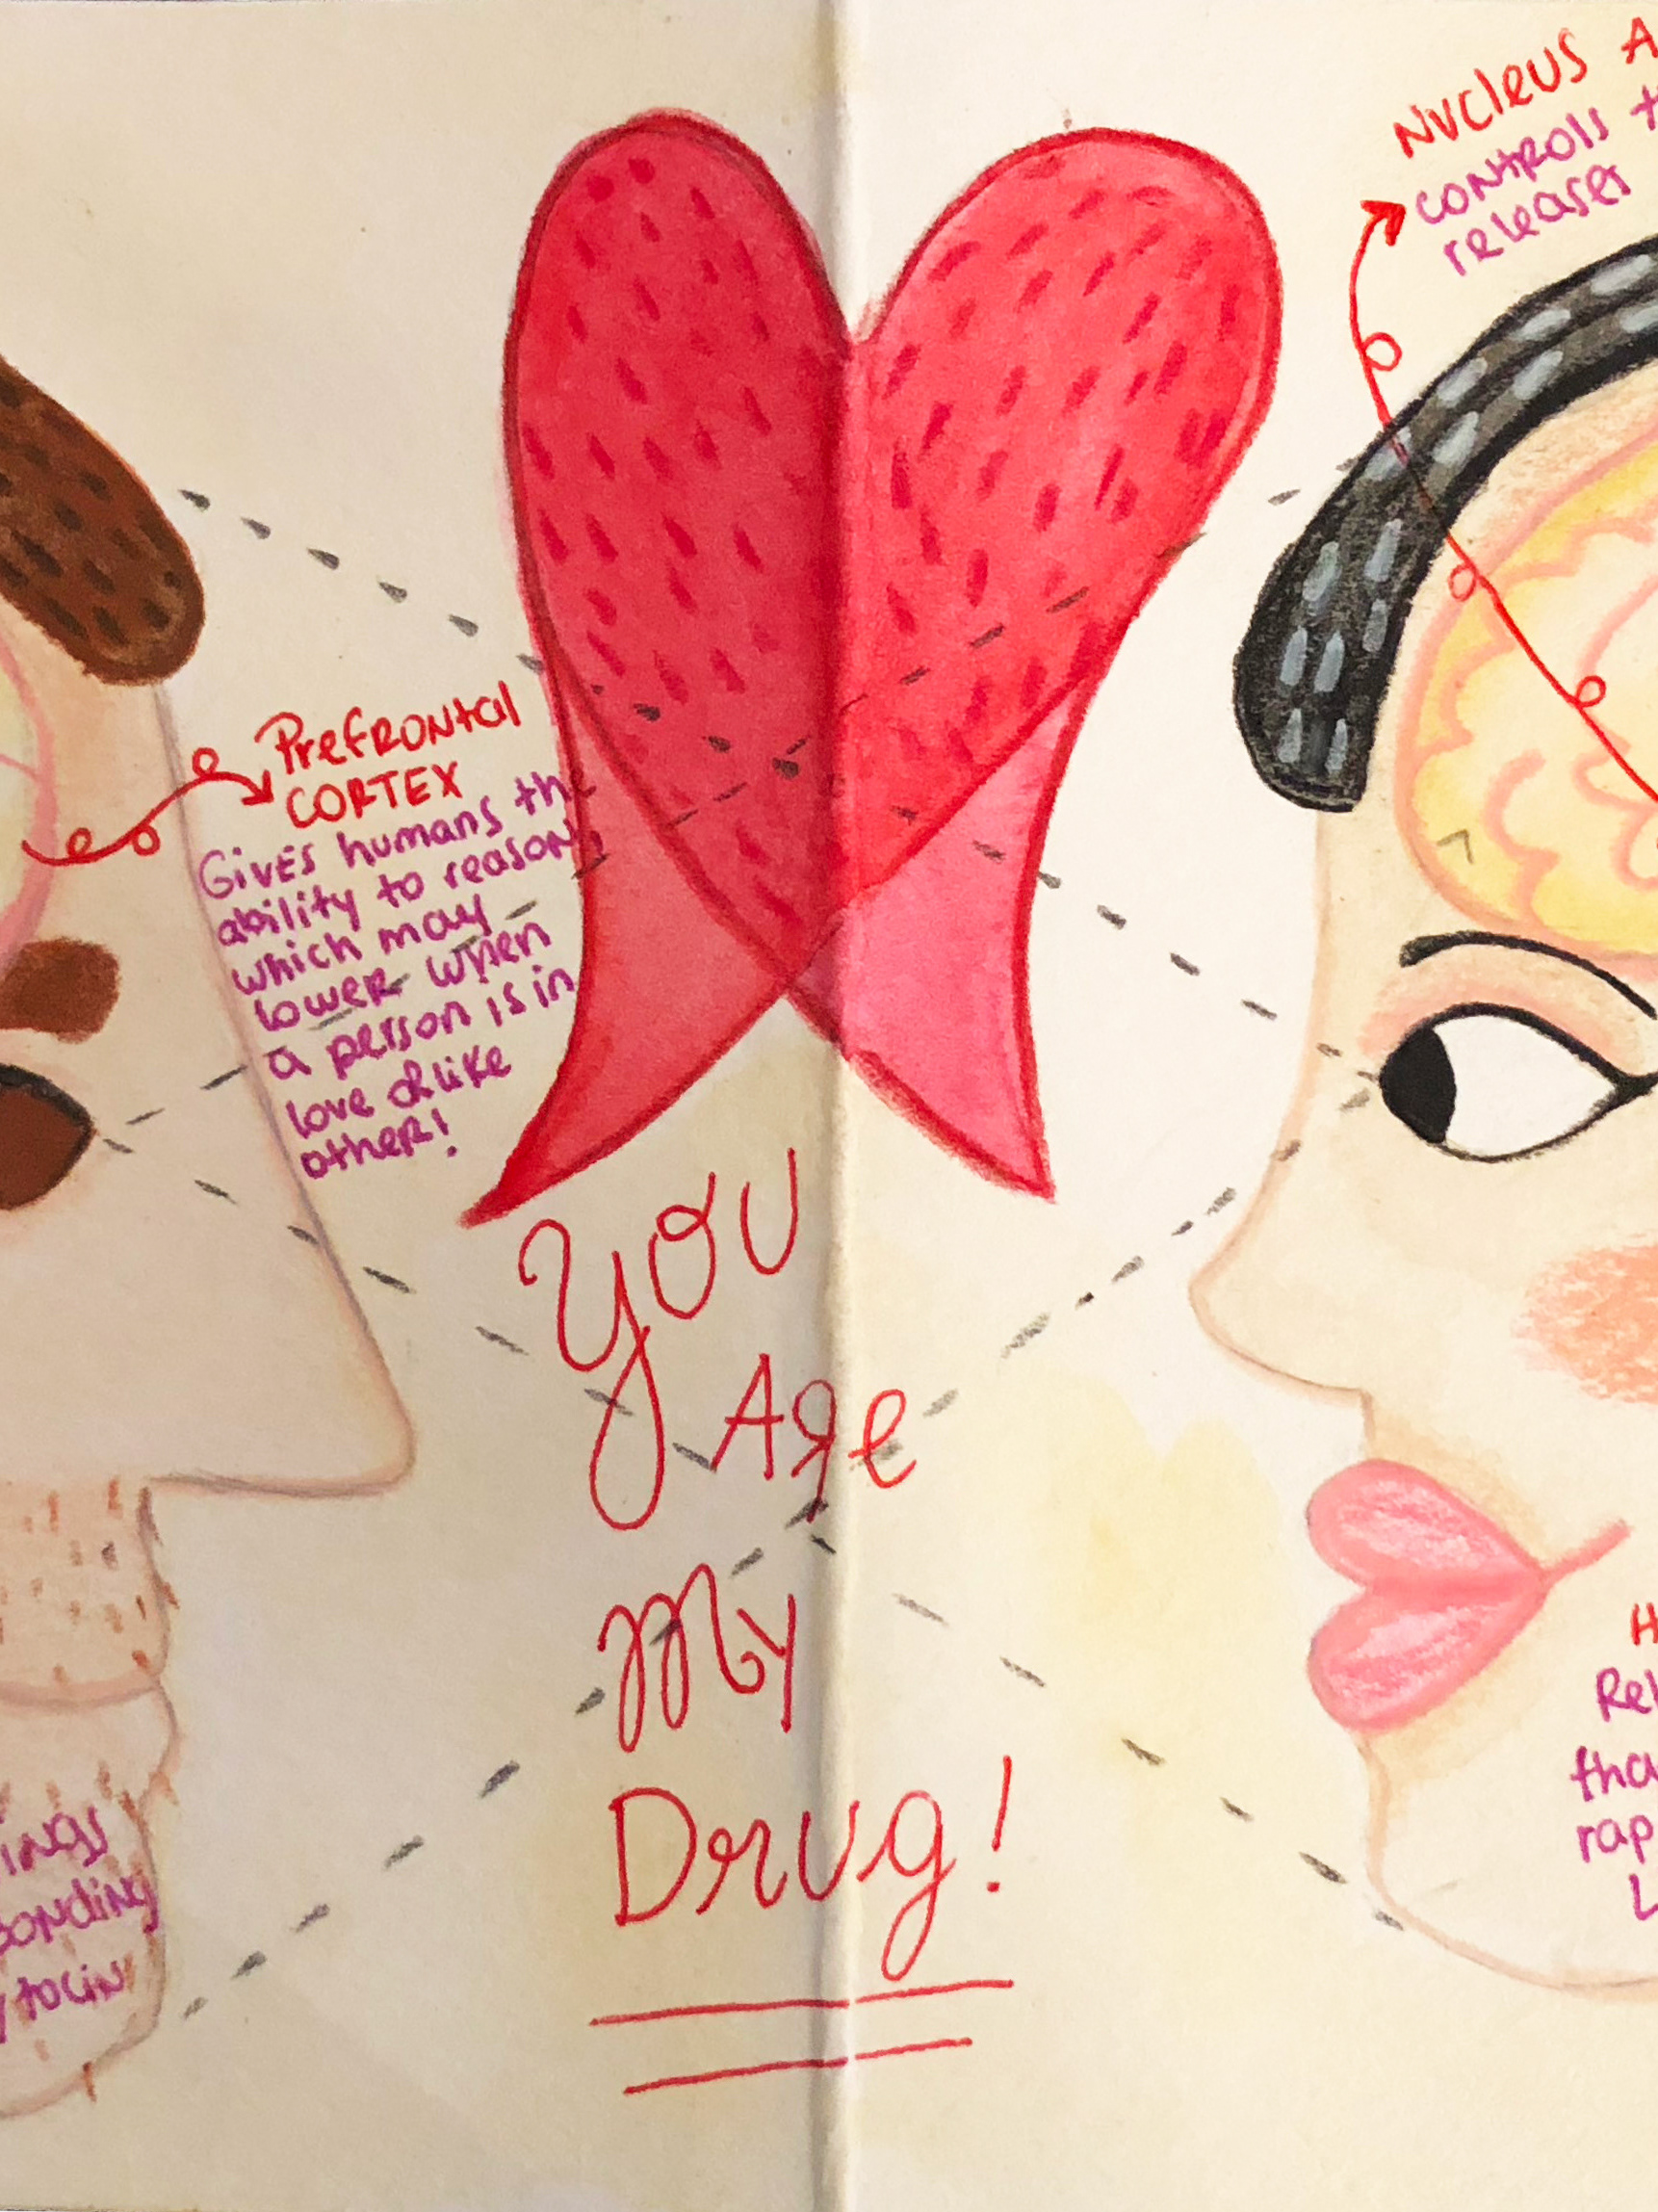 Nucleus A
controls t
releases
Prefrontal
Cortex
Gives humans th
ability to reason,
which may
lower when
a person is in
love & like
other!
You
Are
My
Drug!
ings
Bonding
ytocin
H
Rel
tha
rap
L